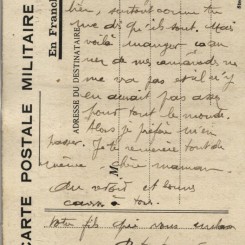 CARTE POSTALE MILITAIRE
En Franch
ADRESSE DU DESTINATAIRE
M
bien, surtout comme tu
me dis qu'ils sont. Mais
voilà manger
mes camarades ne
me va pas et il n'y
en aurait pas assez
pour tout le monde.
Alors je préfère m'en
passer. Je te remercie tout de
même chère maman.
Au revoir et bonne
à tous.
Votre fils qui vous embrasse